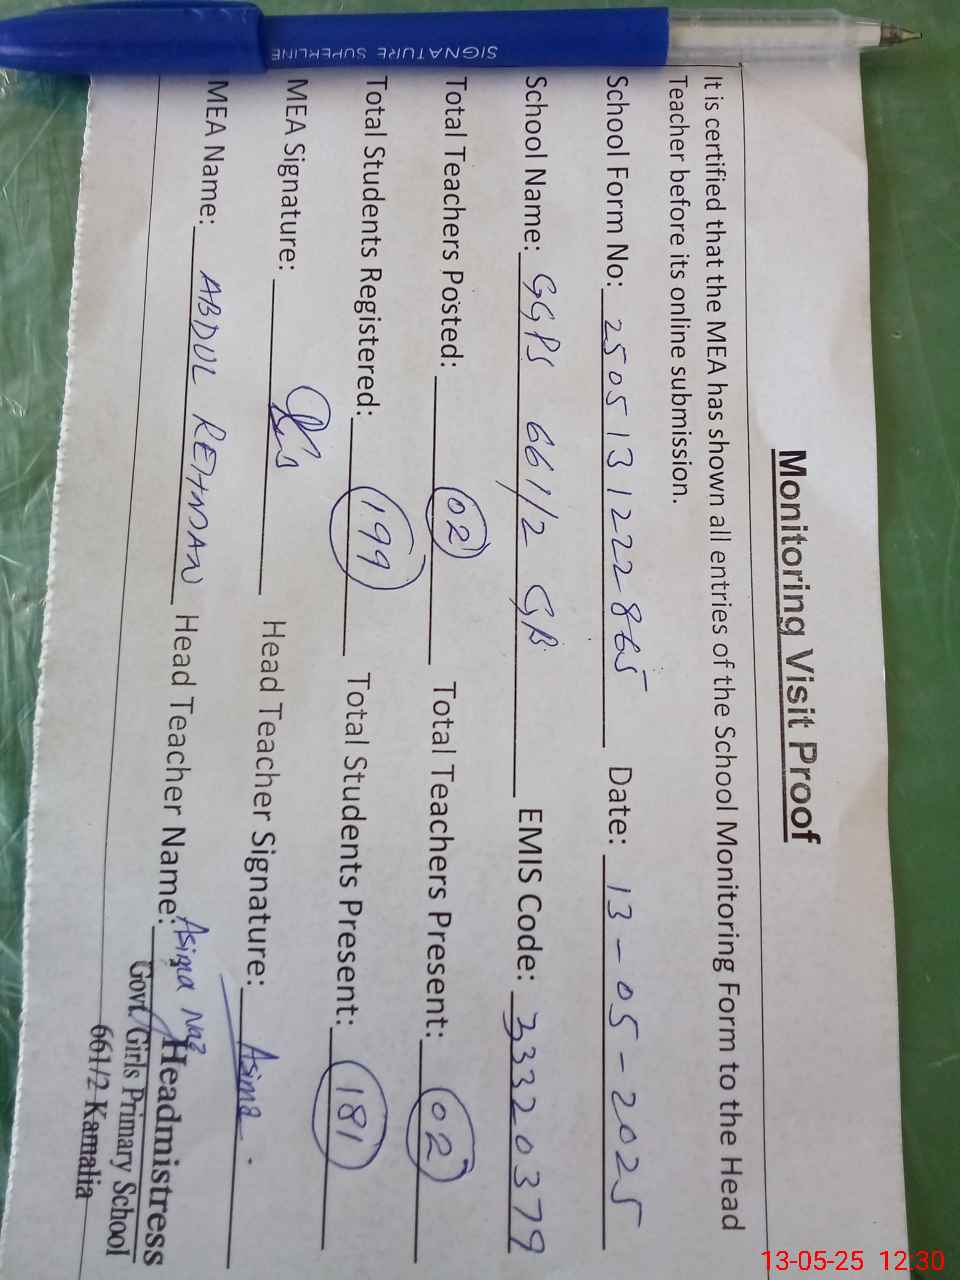 SIGNATURE SUPERLINE
Monitoring Visit Proof
It is certified that the MEA has shown all entries of the School Monitoring Form to the Head
Teacher before its online submission.
School Form No: 2505131222865 Date: 13-05-2025
School Name: GGPS 661/2 GB EMIS Code: 33320379
Total Teachers Posted: 02 Total Teachers Present: 02
Total Students Registered: 199 Total Students Present: 181
MEA Signature: Head Teacher Signature: Asima
MEA Name: ABDUL REHMAN Head Teacher Name: Asima Naz
Headmistress
Govt Girls Primary School
661/2 Kamalia
13-05-25 12:30